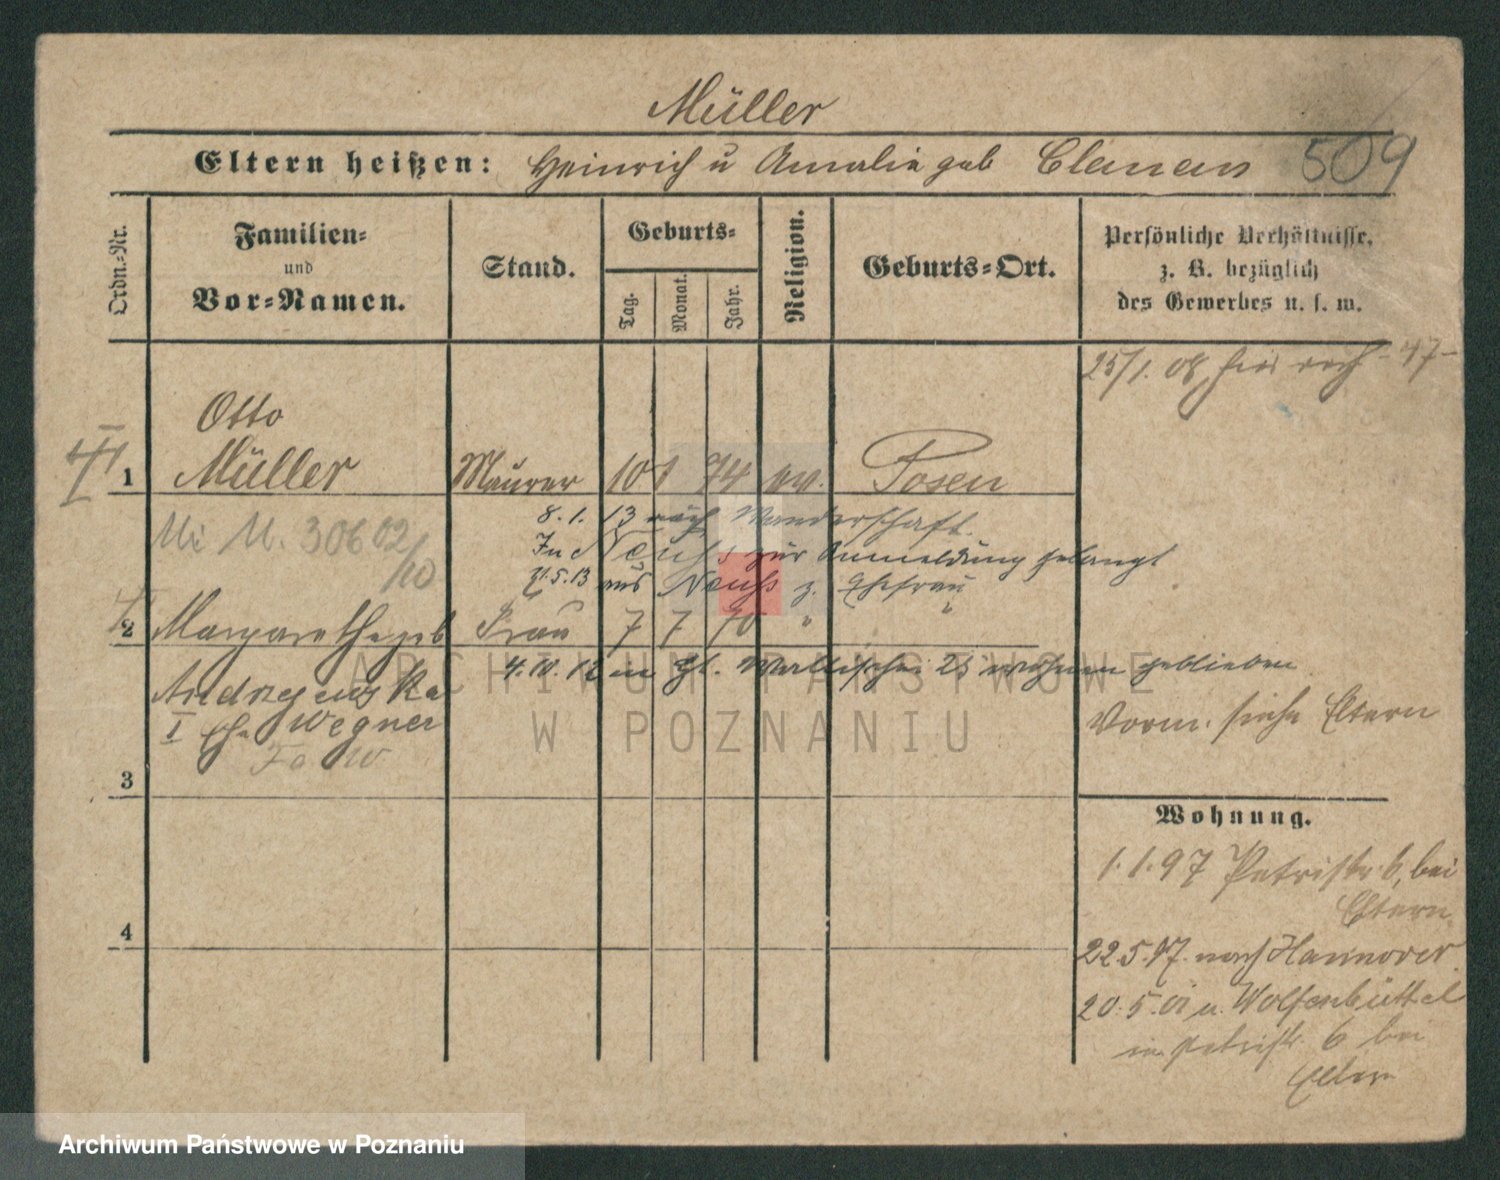 Müller
Eltern heißen: Heinrich u Amalie geb
509
Ordn.-Nr.
Familien-
und
Vor-Namen.
Stand.
Geburts-
Tag.
Monat.
Jahr.
Religion.
Geburts-Ort.
Persönliche Verhältnisse,
z. B. bezüglich
des Gewerbes u. s. w.
25/1. 08
1
Otto
Müller
Maurer 10 1 74 ev. Posen
8. 1. 13 nach Wanderschaft.
In Neuß zur Anmeldung gelangt
21.5.13 aus Neuß z. Ehefrau
30602/10
2 Margarethe geb Frau 7 7 70 " "
4.10.12 in wohnen geblieben
I Ehe Wegner
Vorm. siehe Eltern
3
Wohnung.
1.1.97 Petristr. 6, bei
Eltern.
22.5.97. nach Hannover.
20.5.01 v. Wolfenbüttel
in Petristr. 6 bei
Eltern
4
ARCHIWUM PAŃSTWOWE
W POZNANIU
Archiwum Państwowe w Poznaniu